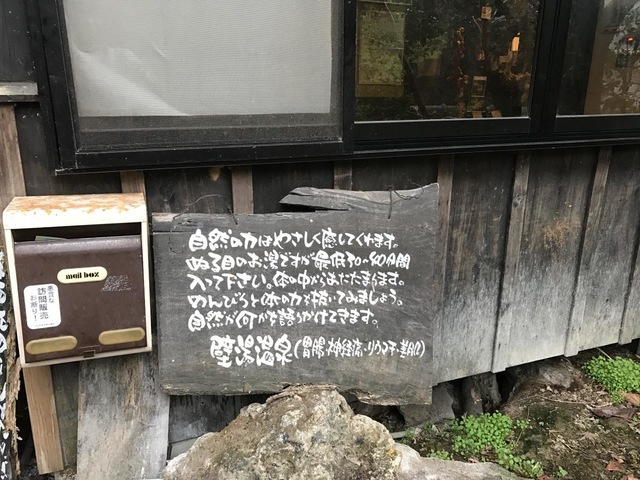 自然の力はやさしく癒してくれます。
ぬる目のお湯ですが最低30〜40分間
入って下さい。体の中からあたたまります。
のんびりと体の力を抜いてみましょう。
自然が何かを語りかけてきます。
壁湯温泉(胃腸・神経痛・リウマチ・美肌)
mail box
悪質な
訪問販売
お断り!